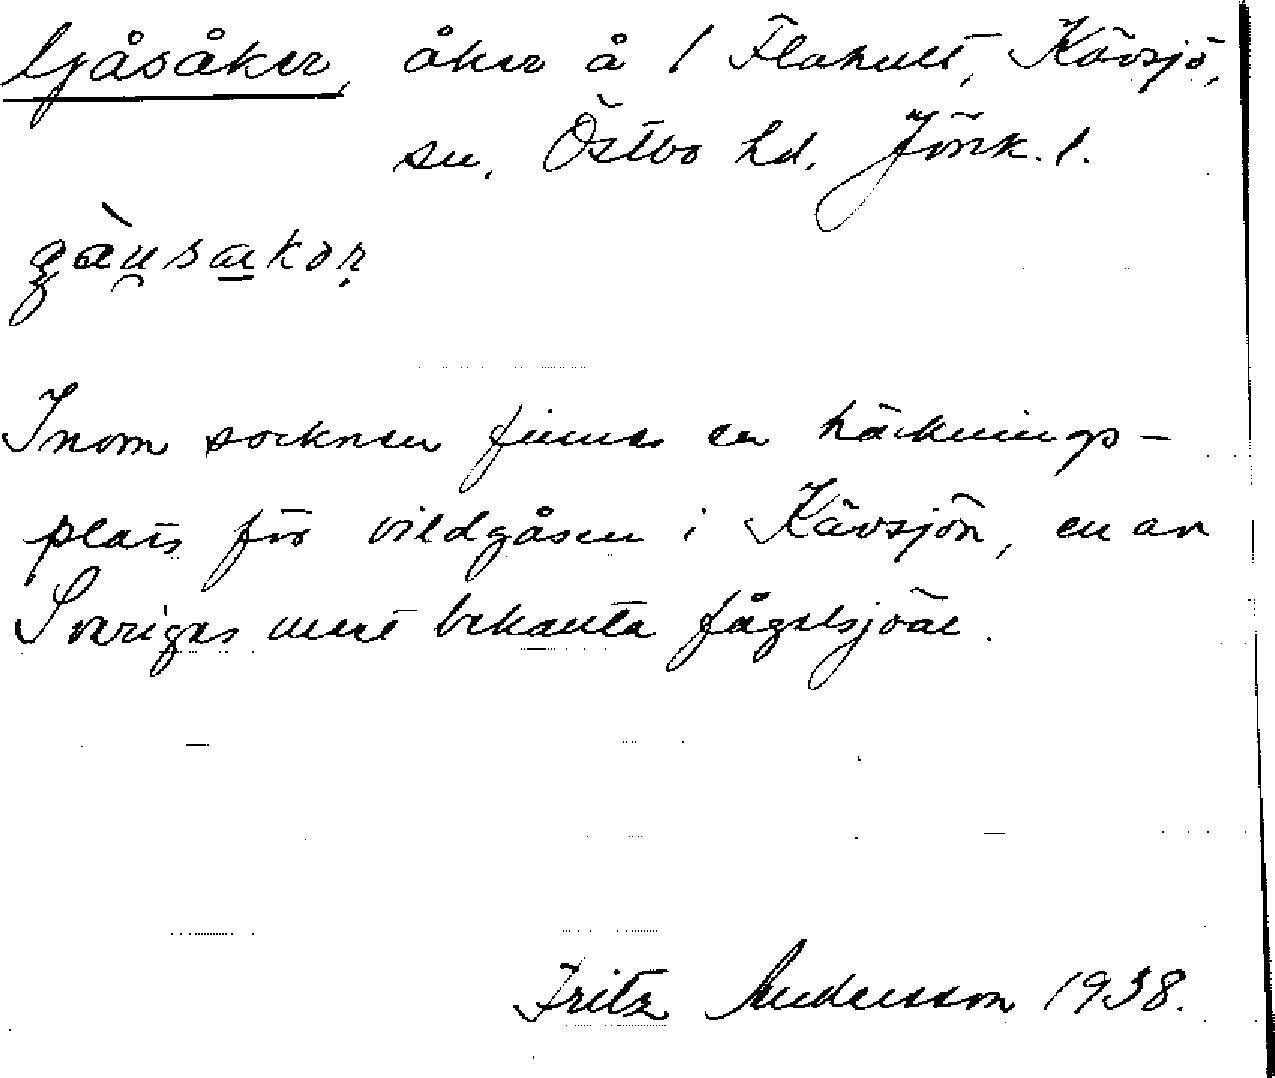 Gåsåker, åker å 1 Flahult, Kävsjö,
sn, Östbo hd, Jönk. l.
Inom socknen finns en häcknings-
plats för vildgåsen i Kävsjön, en av
Sveriges mest bekanta fågelsjöar.
Fritz Andersson 1938.